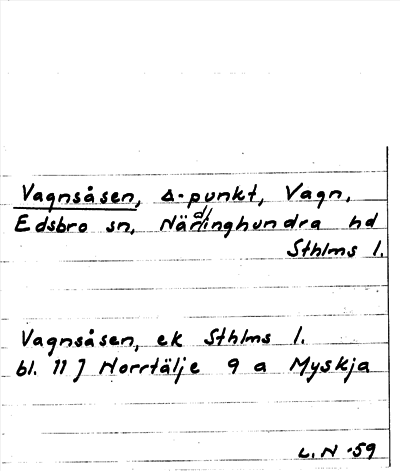 Vagnsåsen, Δ-punkt, Vagn,
Edsbro sn, Närdinghundra hd
Sthlms l.
Vagnsåsen, ek Sthlms l.
bl. 11 J Norrtälje 9 a Myskja
L.N -59